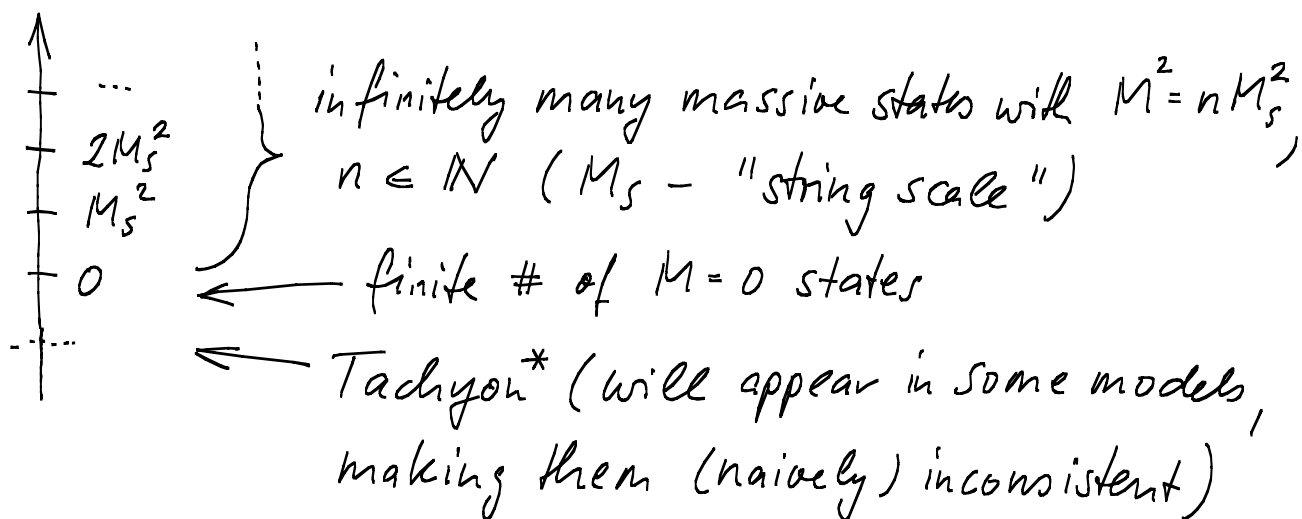 ...
2M_s^2
M_s^2
0
infinitely many massive states with M^2 = nM_s^2,
n ∈ ℕ (M_s – "string scale")
finite # of M = 0 states
Tachyon* (will appear in some models,
making them (naively) inconsistent)